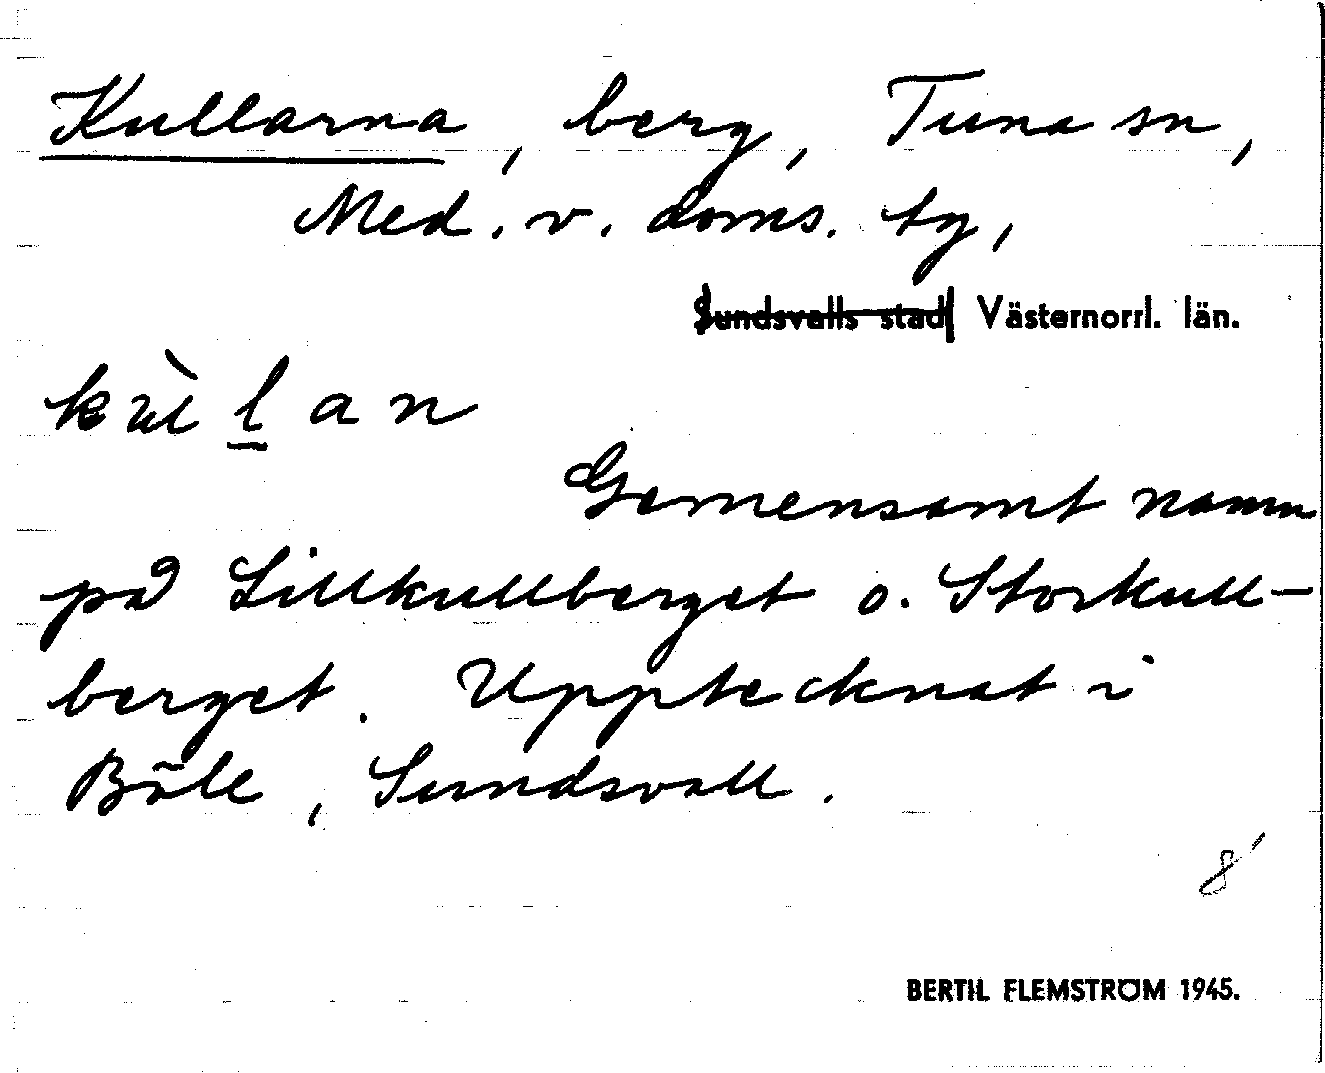 Kullarna, berg, Tuna sn,
Med. v. doms. tg,
Sundsvalls stad Västernorrl. län.
kùlan
Gemensamt namn
på Lillkullberget o. Storkull-
berget. Upptecknat i
Böle, Sundsvall.
8'
BERTIL FLEMSTRÖM 1945.